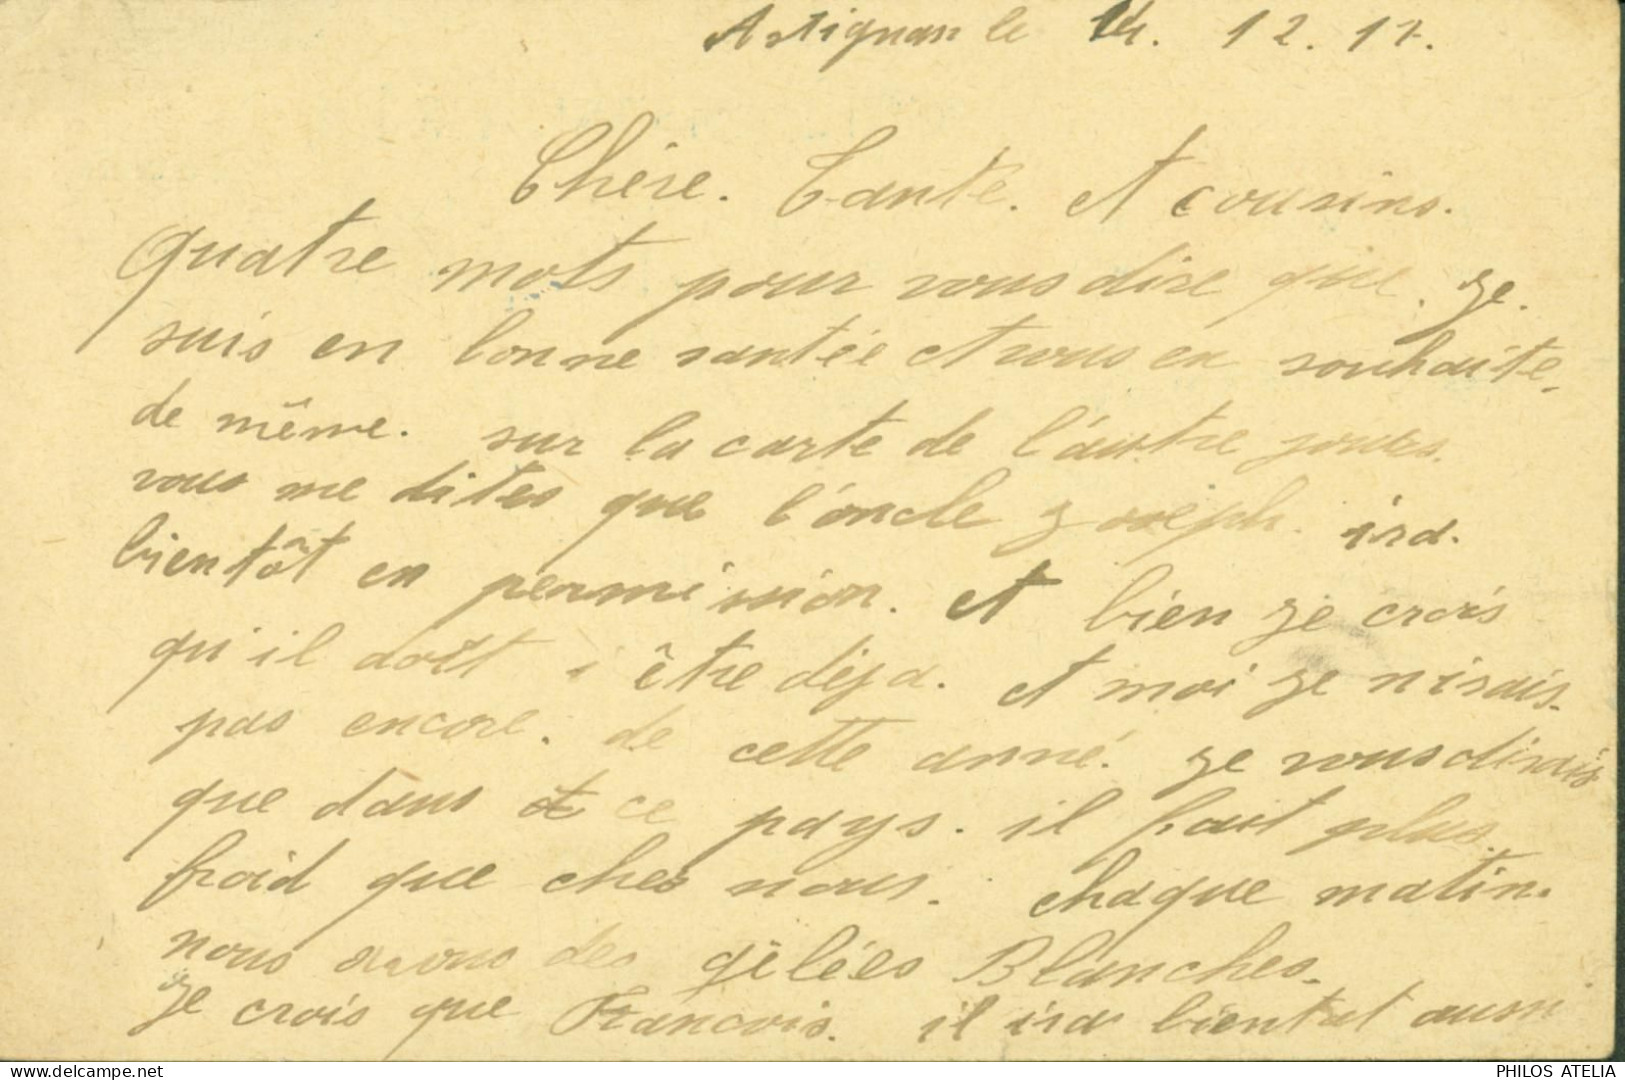 Artignan le 14. 12. 17.
Chère. Tante. et cousins.
Quatre mots pour vous dire que. Je.
suis en bonne santée et vous en souhaite.
de même. sur la carte de l'autre jours.
vous me dites que l'oncle Joseph. ira.
bientôt en permission. et bien je crois
qu'il doit i être déja. et moi je n'irais.
pas encore. de cette anné. je vous dirais
que dans ce pays. il fait plus.
froid que chez nous. chaque matin.
nous avons des gélées Blanches.
Je crois que Francois. il ira bientot aussi
delcampe.net
PHILOS ATELIA